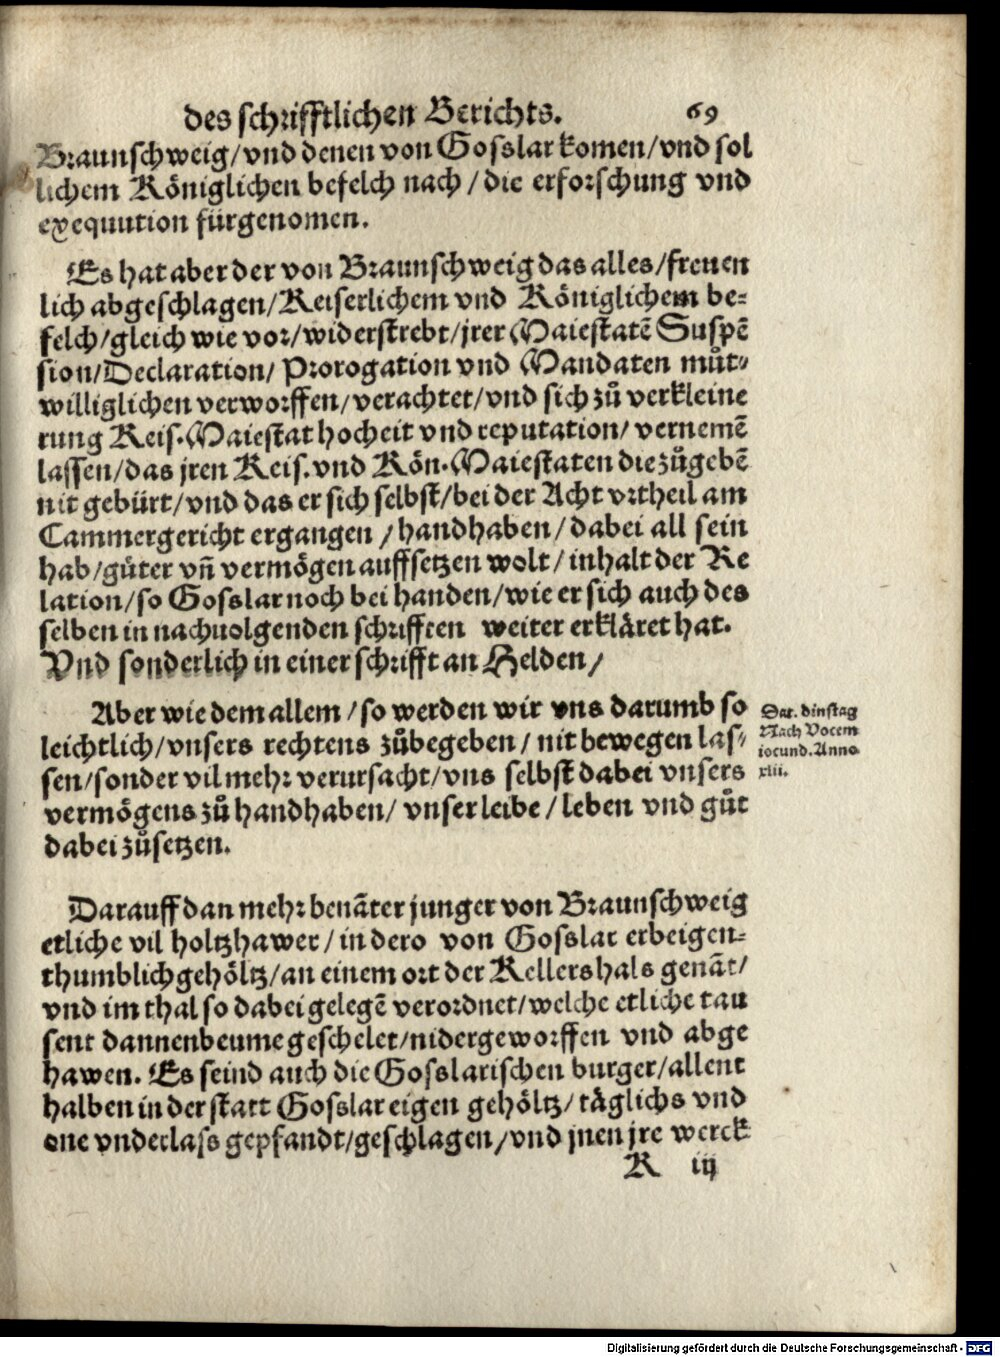 des schrifftlichen Berichts. 69
Braunschweig/vnd denen von Gosslar komen/vnd sol
lichem Königlichen befelch nach/die erforschung vnd
exequution fürgenomen.
Es hat aber der von Braunschweig das alles/freuen
lich abgeschlagen/Keiserlichem vnd Königlichem be=
felch/gleich wie vor/widerstrebt/jrer Maiestatē Suspē
sion/Declaration/Prorogation vnd Mandaten muͦt=
williglichen verworffen/verachtet/vnd sich zuͦ verkleine
rung Keis. Maiestat hocheit vnd reputation/vernemē
lassen/das jren Keis. vnd Kön. Maiestaten die zuͦgebē
nit gebürt/vnd das er sich selbst/bei der Acht vrtheil am
Cammergericht ergangen/handhaben/dabei all sein
hab/güter vñ vermögen auffsetzen wolt/inhalt der Re
lation/so Gosslar noch bei handen/wie er sich auch des
selben in nachuolgenden schrifften weiter erkläret hat.
Vnd sonderlich in einer schrifft an Helden/
Aber wie dem allem/so werden wir vns darumb so
leichtlich/vnsers rechtens zuͦbegeben/nit bewegen las=
sen/sonder vil mehr verursacht/vns selbst dabei vnsers
vermögens zuͦ handhaben/vnser leibe/leben vnd guͦt
dabei zuͦsetzen.
Dat. dinstag
Nach Vocem
iocund. Anno
xlii.
Darauff dan mehr benāter junger von Braunschweig
etliche vil holtzhawer/in dero von Gosslar erbeigen=
thumblich gehöltz/an einem ort der Kellershals genāt/
vnd im thal so dabei gelegē verordnet/welche etliche tau
sent dannenbeume geschelet/nidergeworffen vnd abge
hawen. Es seind auch die Gosslarischen burger/allent
halben in der statt Gosslar eigen gehöltz/täglichs vnd
one vnderlass gepfandt/geschlagen/vnd jnen jre werck
K iij
Digitalisierung gefördert durch die Deutsche Forschungsgemeinschaft - DFG